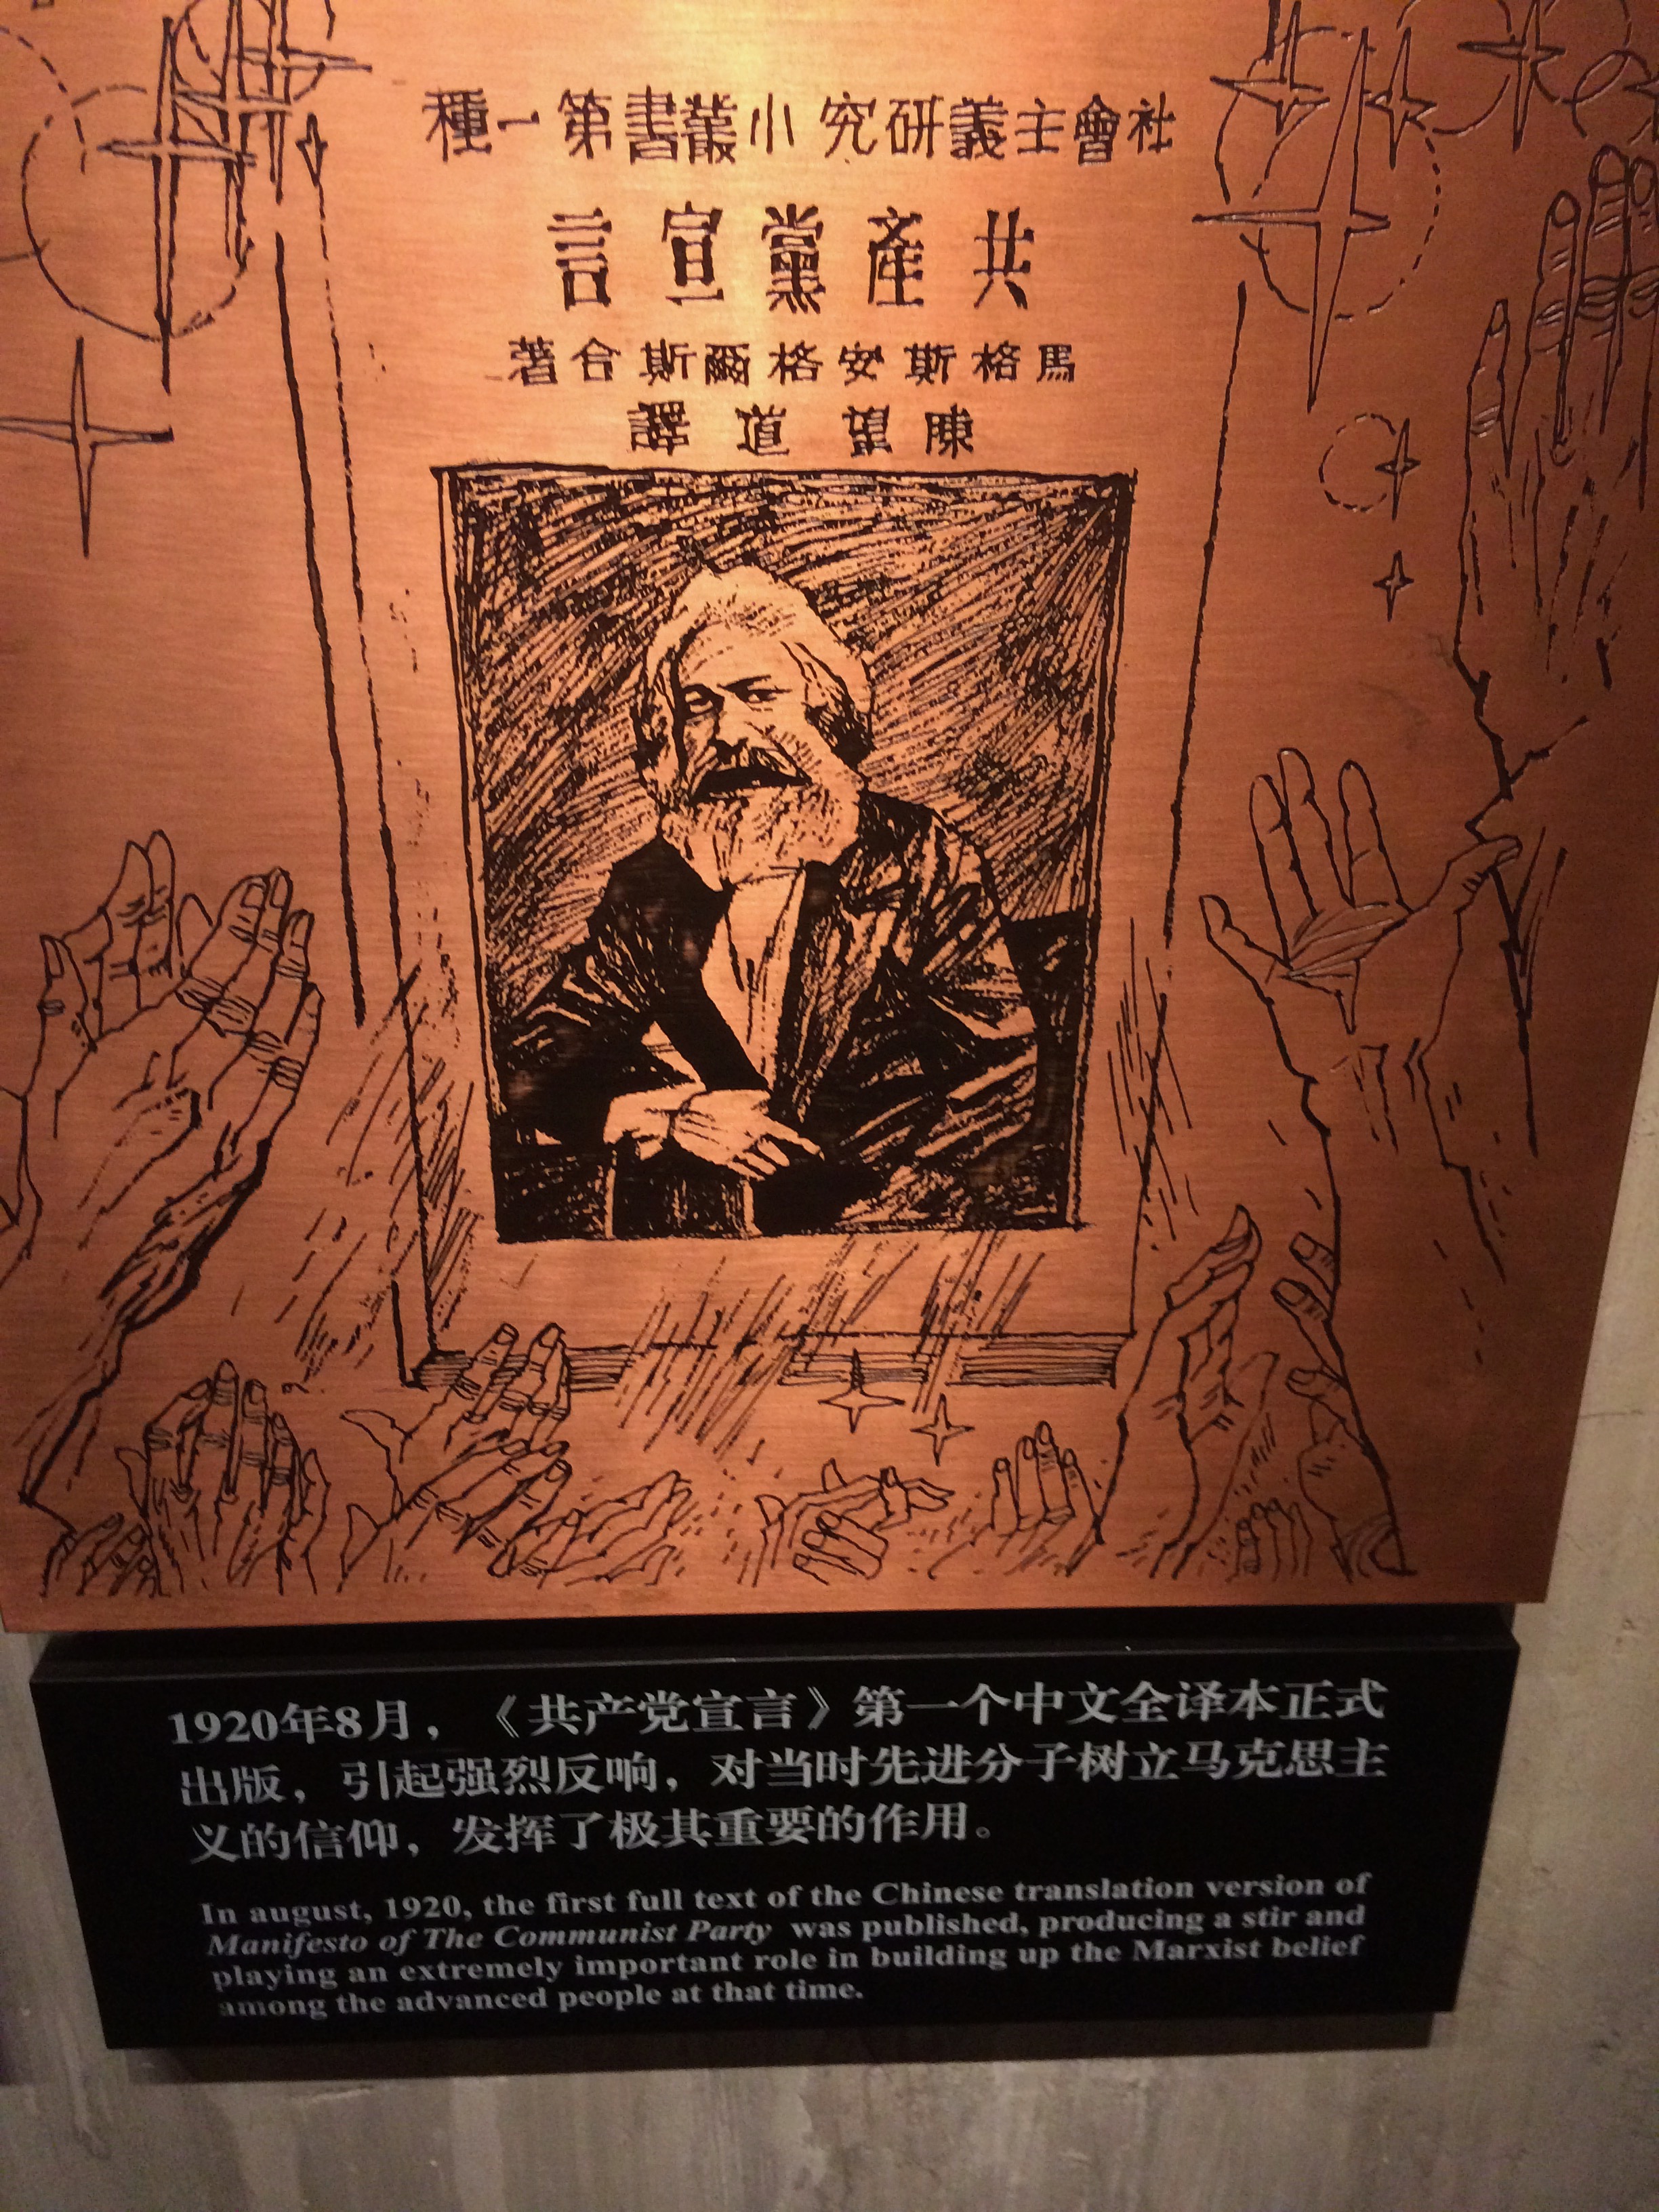 社會主義研究小叢書第一種
共產黨宣言
馬格斯安格爾斯合著
陳望道譯
1920年8月，《共产党宣言》第一个中文全译本正式
出版，引起强烈反响，对当时先进分子树立马克思主
义的信仰，发挥了极其重要的作用。
In august, 1920, the first full text of the Chinese translation version of
Manifesto of The Communist Party was published, producing a stir and
playing an extremely important role in building up the Marxist belief
among the advanced people at that time.